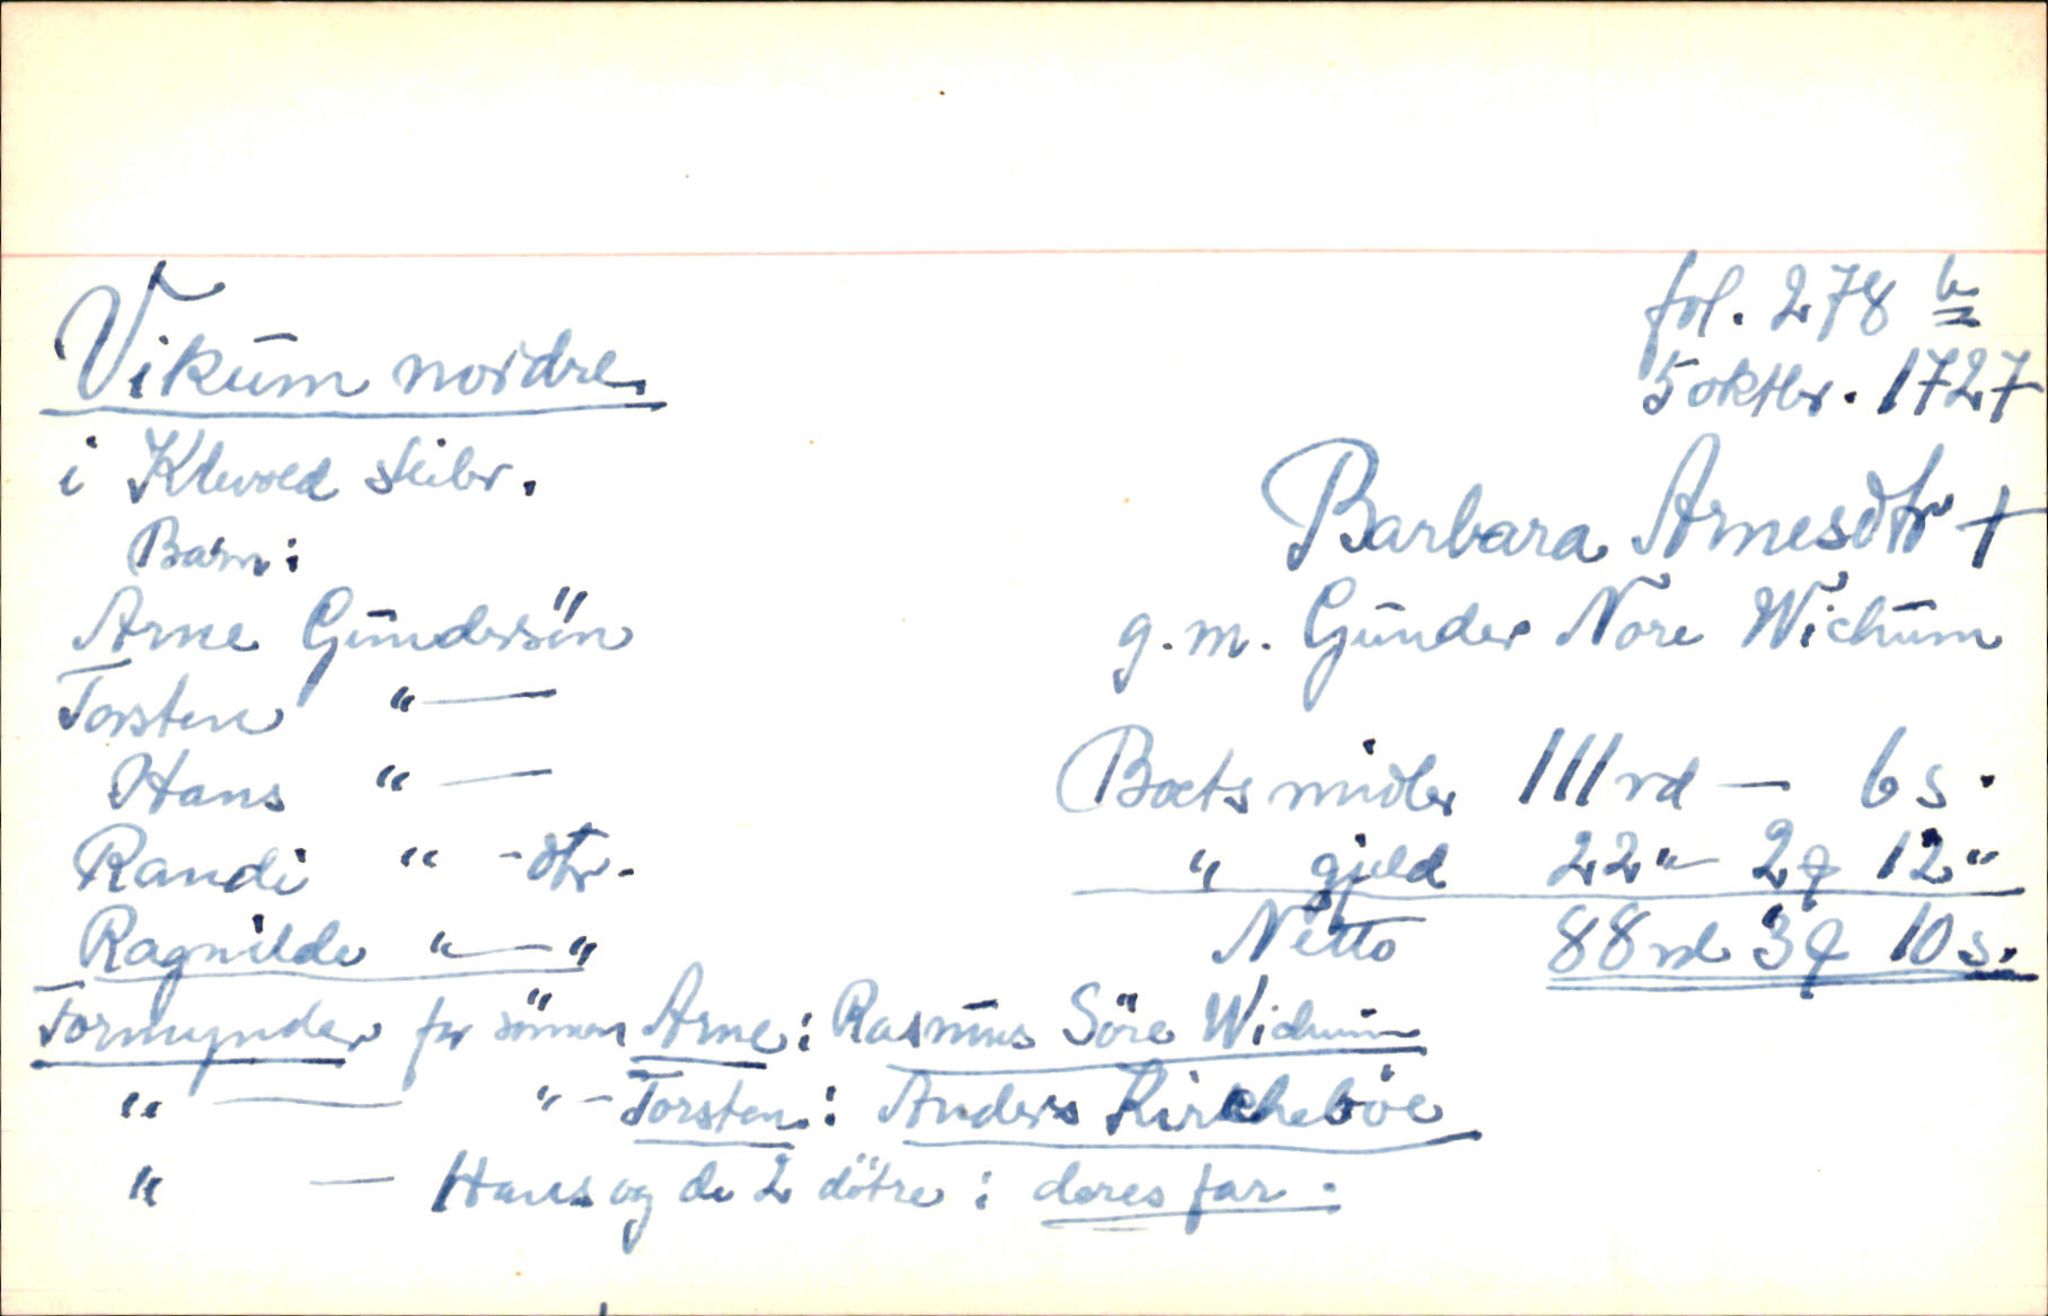 fol. 278 b
Vikum nordre
5 oktbr. 1727
i Klevold skibr.
Barbara Arnesdtr +
Barn:
Arne Gundersön
g.m. Gunder Nore Wichum
Torsten " —
Hans " —
Boets midler 111 rd — 6 s.
Randi " -dtr.
" gjeld 22 " 2 q 12 "
Ragnilde " — "
Netto 88 rd 3 q 10 s.
Formynder for sönnen Arne: Rasmus Söre Wichum
" — " - Torsten: Anders Kircheböe
" — Hans og de 2 dötre: deres far.